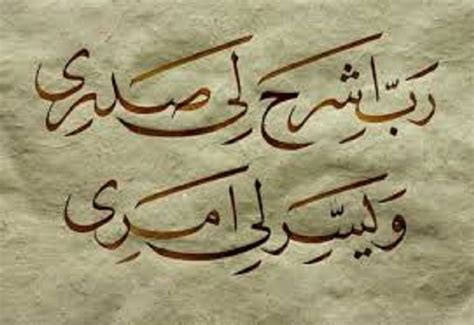 رَبِّ اشْرَحْ لِي صَدْرِي
وَيَسِّرْ لِي امْرِي